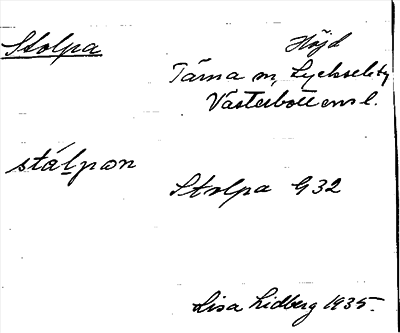 Stolpa
Höjd
Tärna m, Lycksele ty
Västerbottens l.
stålpan
Stolpa G32
Lisa Lidberg 1935.